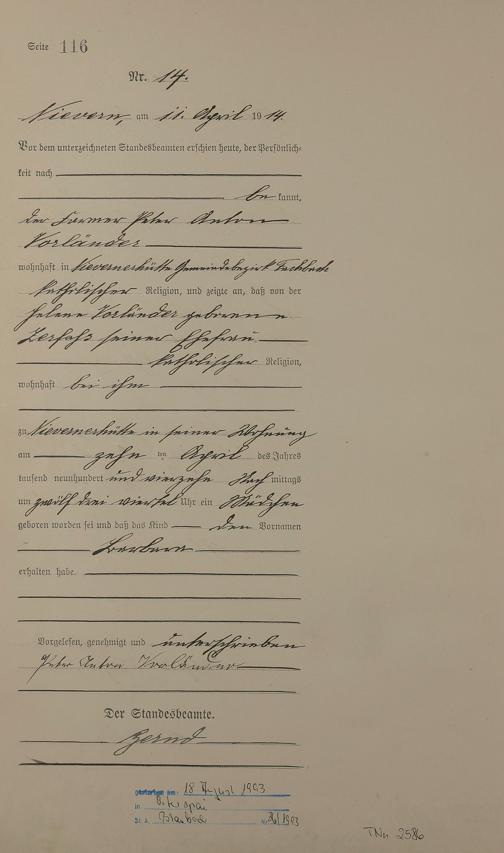 Seite 116
Nr. 14.
Nievern, am 11. April 1914.
Vor dem unterzeichneten Standesbeamten erschien heute, der Persönlich-
keit nach
be kannt,
der Former Peter Anton
Vorländer
wohnhaft in Nievernerhütte Gemeindebezirk Fachbach
katholischer Religion, und zeigte an, daß von der
Helene Vorländer geborene
Zerfaß seiner Ehefrau
katholischer Religion,
wohnhaft bei ihm
zu Nievernerhütte in seiner Wohnung
am zehn ten April des Jahres
tausend neunhundert und vierzehn Nach mittags
um zwölf drei viertel Uhr ein Mädchen
geboren worden sei und daß das Kind den Vornamen
Barbara
erhalten habe.
Vorgelesen, genehmigt und unterschrieben
Peter Anton Vorländer
Der Standesbeamte.
gestorben am: 18 August
in
St. A.
TNu 2586